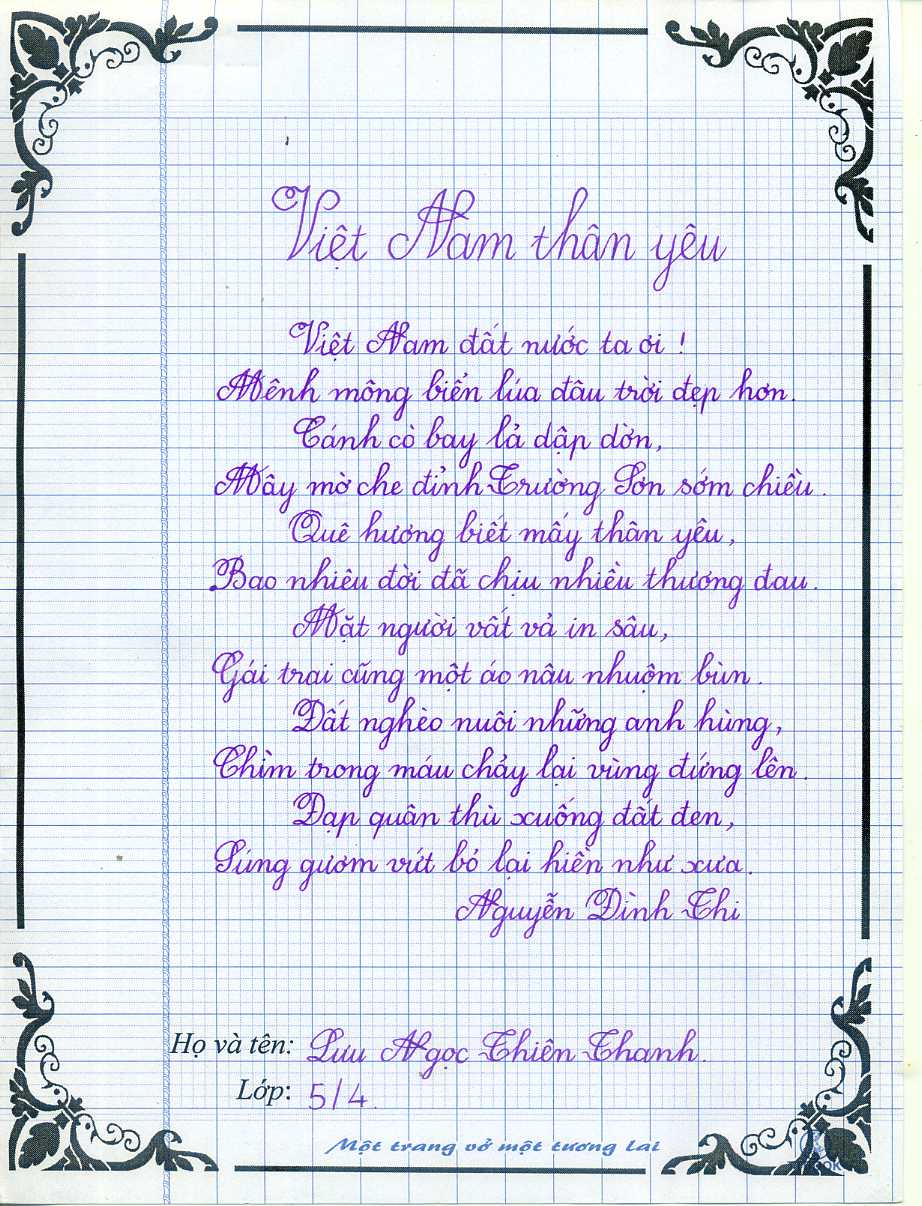 Việt Nam thân yêu
Việt Nam đất nước ta ơi !
Mênh mông biển lúa đâu trời đẹp hơn.
Cánh cò bay lả dập dờn,
Mây mờ che đỉnh Trường Sơn sớm chiều.
Quê hương biết mấy thân yêu,
Bao nhiêu đời đã chịu nhiều thương đau.
Mặt người vất vả in sâu,
Gái trai cũng một áo nâu nhuộm bùn.
Đất nghèo nuôi những anh hùng,
Chìm trong máu chảy lại vùng đứng lên.
Đạp quân thù xuống đất đen,
Súng gươm vứt bỏ lại hiền như xưa.
Nguyễn Đình Thi
Họ và tên: Lưu Ngọc Thiên Thanh.
Lớp: 5/4.
Một trang vở một tương lai